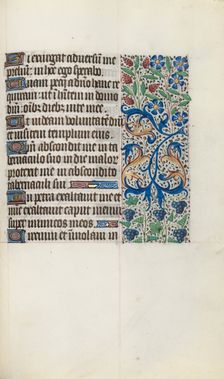 Si exurgat adversum me
prelium: in hoc ego sperabo.
Unam petii a dno hanc re
quiram: ut inhabitem in domo
dñi: oïbz diebz vite mee.
Ut videam voluntatē dñi
et visitem templum eius.
Qm abscondit me in ta
bernaculo suo in die malor
protexit me in abscondito
tabernaculi sui.
In petra exaltavit me et
nunc exaltavit caput meum
super inimicos meos.
Circuivi et ïmolavi in